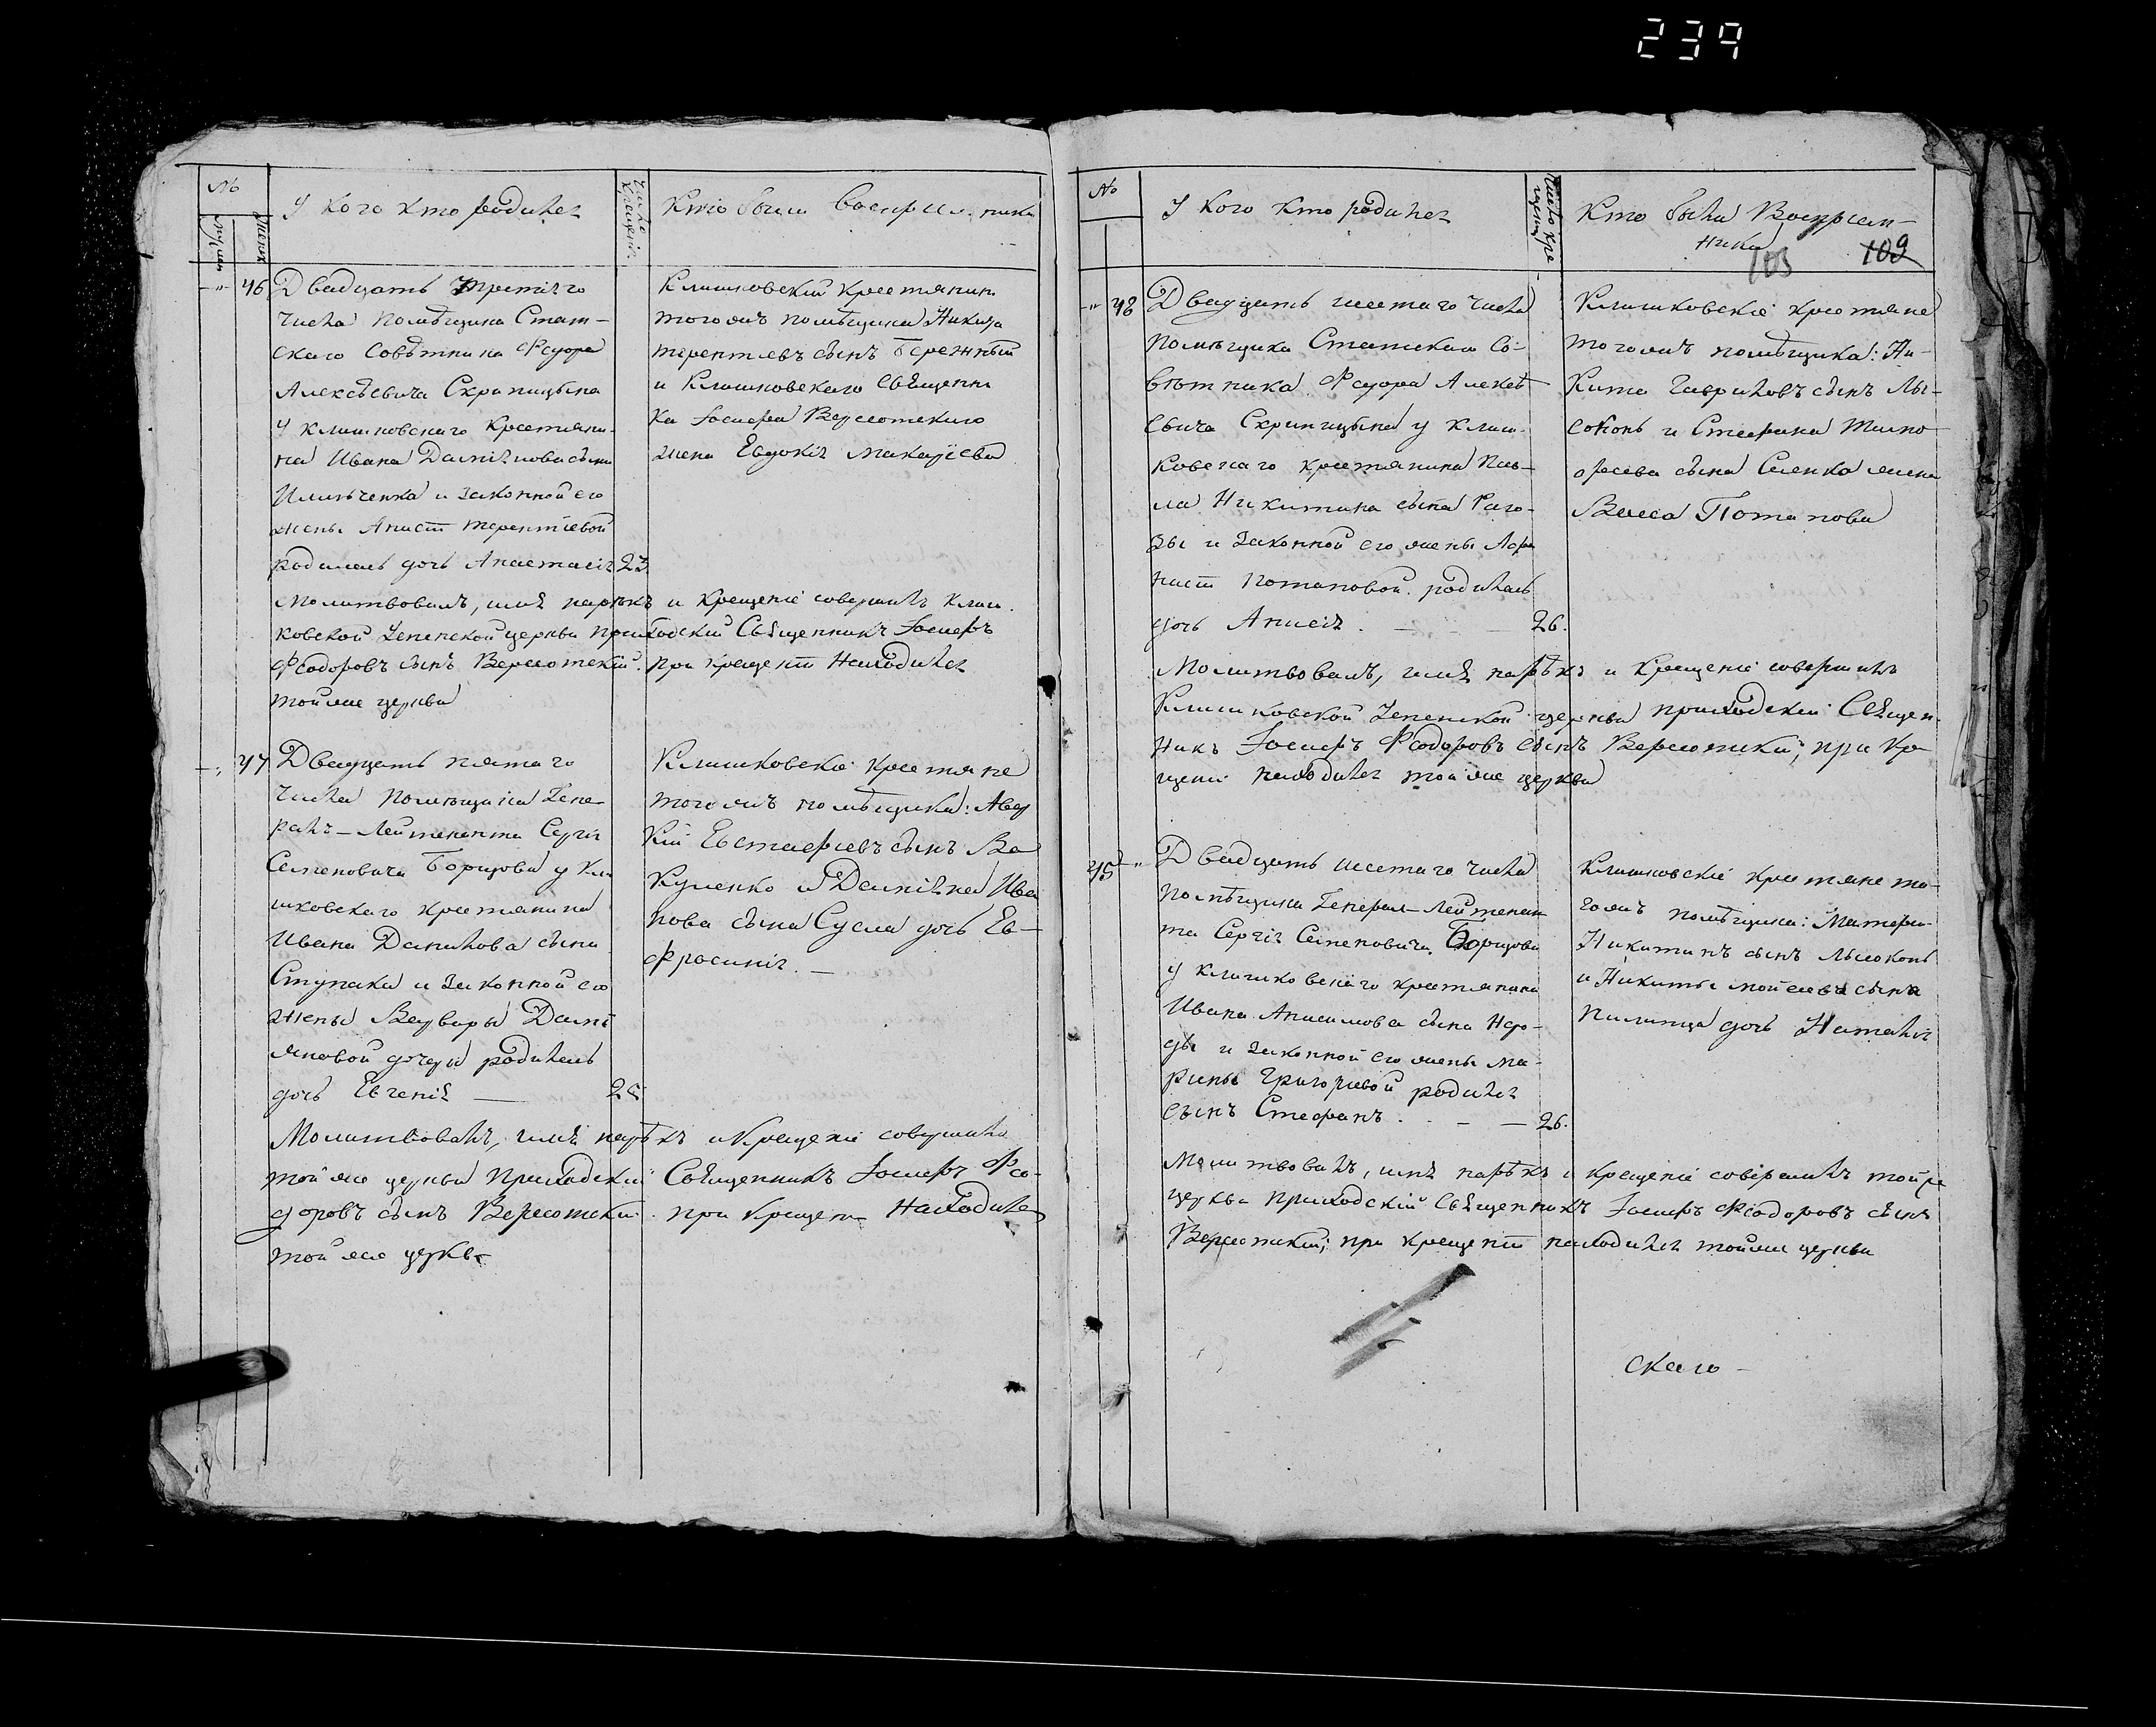 239
№
У кого кто родился
Число Крещенія
Кто были восприемники
мужеск
Женск
46 Двадцать третіяго
числа помѣщика Стат-
скаго Совѣтника Феодора
Алексѣевича Скрипицына
у клишковскаго крестьяни-
на Ивана Даміянова сына
Ильченка и законной его
жены Анисіи Терентіевой
родилась дочь Анастасія 23.
Клишковскій крестьянинъ
тогожъ помѣщика Никита
Терентіевъ сынъ Бережный
и Клишковскаго Священни
ка Іосифа Вереіотскаго
жена Евдокія Макарiева
Молитвовалъ, имя нарѣкъ и крещеніе совершилъ Клиш-
ковской Успенской церкви приходскій Священникъ Іосифъ
Феодоровъ сынъ. при крещеніи находился
тойже церкви
47 Двадцать пятаго
числа помѣщика Гене-
ралъ-Лейтенанта Сергія
Семеновича Борщова у Кли
шковскаго крестьянина
Ивана Данилова сына
Ступака и законной его
жены Варвары Дамі
яновой дочери родилась
дочь Евгенія — 25.
Клишковскіе крестьяне
тогожъ помѣщика: Авд
кій Евстафіевъ сынъ Ва
куленко и Даміяна Ива
нова сына Сусла дочь Ев-
фросинія. —
Молитвовалъ, имя нарѣкъ и крещеніе совершилъ
тойже церкви Приходскій Священникъ Іосифъ Фео-
доровъ сынъ при крещеніи находился
тойже церкви
№
У кого кто родился
Число Кре
щенія
Кто были Восприем-
ники
103 109
48 Двадцать шестаго числа
помѣщика Статскаго Со-
вѣтника Феодора Алексѣ
евича Скрипицына у клиш-
ковскаго крестьянина Пав-
ла Никитина сына Рого-
зы и законной его жены Афа
насіи Потаповой родилась
дочь Анисія. — — — 26.
Клишковскіе крестьяне
тогожъ помѣщика: Ни-
кита Гавриловъ сынъ Лы-
соконь и Стефана Тимо
феева сына жена
Васса Потапова
Молитвовалъ, имя нарѣкъ и крещеніе совершилъ
Клишковской Успенской церкви приходскій Священ-
никъ Іосифъ Феодоровъ сынъ при кре
щеніи находился тойже церкви
45 Двадцать шестаго числа
помѣщика Генерал-Лейтенан
та Сергія Семеновича Борщова
у клишковскаго крестьянина
Ивана Анисимова сына
и законной его жены Ма-
рины Григоріевой родился
сынъ Стефанъ. — — 26.
Клишковскіе крестьяне то-
гожъ помѣщика:
Никитинъ сынъ Лысоконь
и Никиты Мойсеева сына
дочь Наталія
Молитвовалъ, имя нарѣкъ и крещеніе совершилъ тойже
церкви приходскій Священникъ Іосифъ Феодоровъ сынъ
при крещеніи находился тойже церкви
скаго —